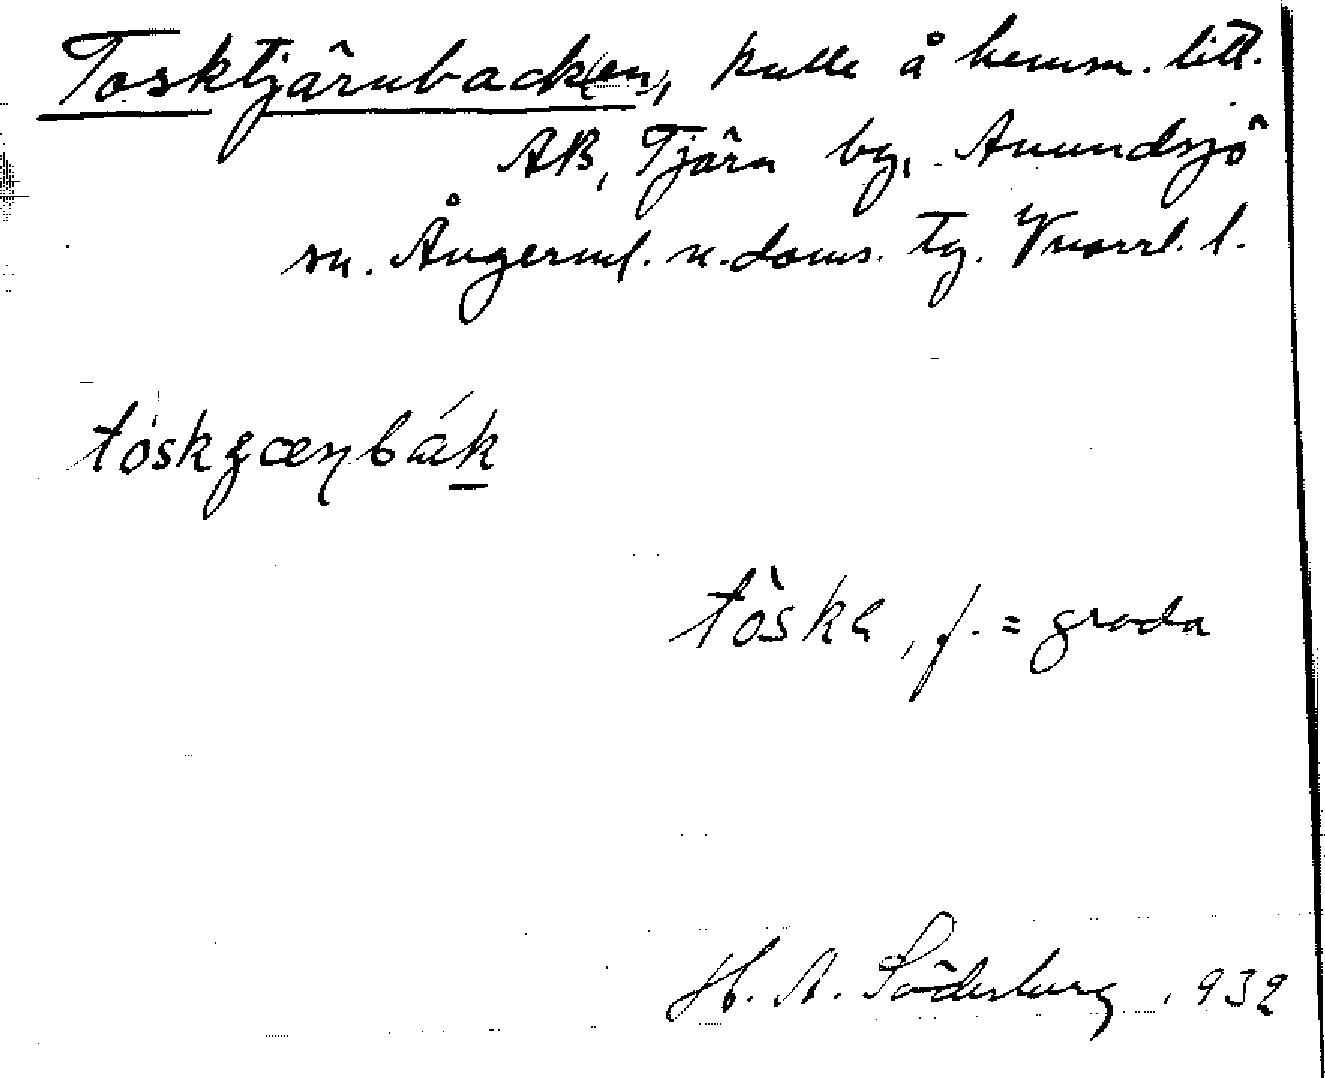 Tosktjärnbacken, kulle å hemm. litt.
AB, Tjärn by, Anundsjö
sn. Ångerml. n. doms. tg. Vnorrl. l.
tóskgœnbák
tòska, f. = groda
H. A. Söderberg, 932